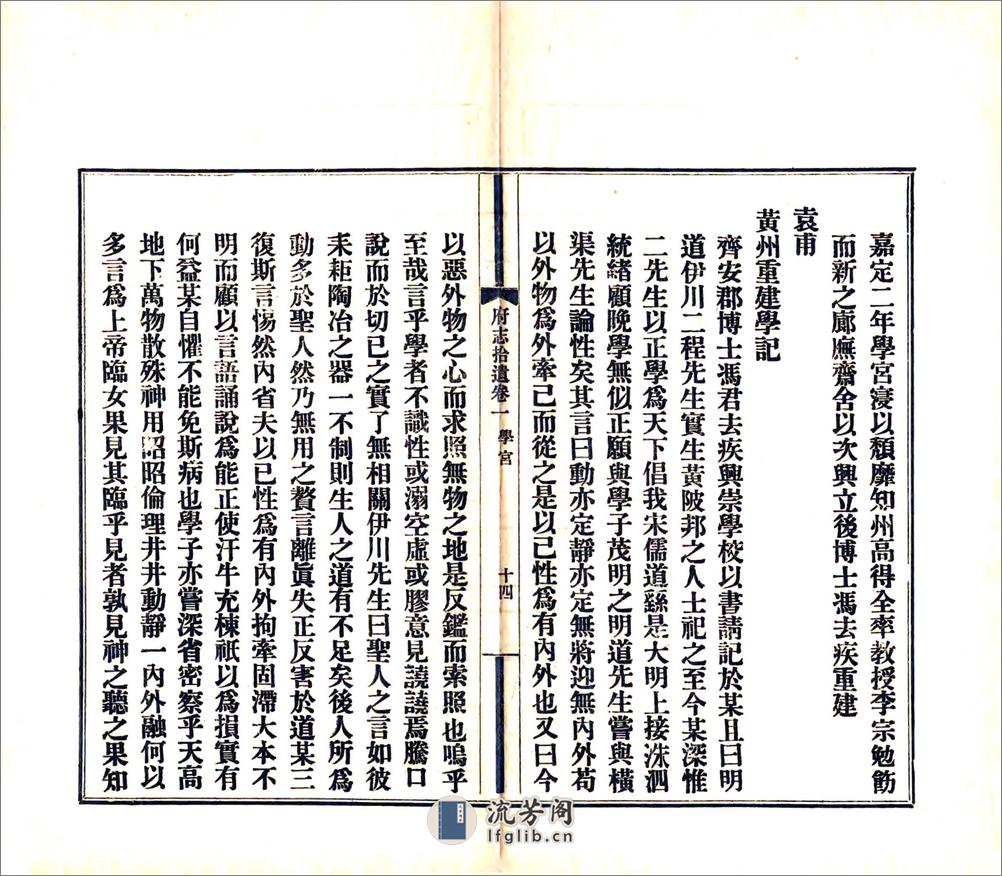 嘉定二年學宮寖以頽靡知州高得全率教授李宗勉飭
而新之廊廡齋舍以次興立後博士馮去疾重建
袁甫
黃州重建學記
齊安郡博士馮君去疾興崇學校以書請記於某且曰明
道伊川二程先生實生黃陂邦之人士祀之至今某深惟
二先生以正學為天下倡我宋儒道繇是大明上接洙泗
統緒顧晚學無似正願與學子茂明之明道先生嘗與橫
渠先生論性矣其言曰動亦定靜亦定無將迎無內外苟
以外物為外牽己而從之是以己性為有內外也又曰今
府志拾遺卷一 學宮 十四
以惡外物之心而求照無物之地是反鑑而索照也嗚乎
至哉言乎學者不識性或溺空虛或膠意見譊譊焉騰口
說而於切已之實了無相關伊川先生曰聖人之言如彼
耒耟陶冶之器一不制則生人之道有不足矣後人所為
動多於聖人然乃無用之贅言離眞失正反害於道某三
復斯言惕然內省夫以已性為有內外拘牽固滯大本不
明而顧以言語誦說為能正使汗牛充棟祇以為損實有
何益某自懼不能免斯病也學子亦嘗深省密察乎天高
地下萬物散殊神用昭昭倫理井井動靜一內外融何以
多言為上帝臨女果見其臨乎見者孰見神之聽之果知
流芳阁
lfglib.cn